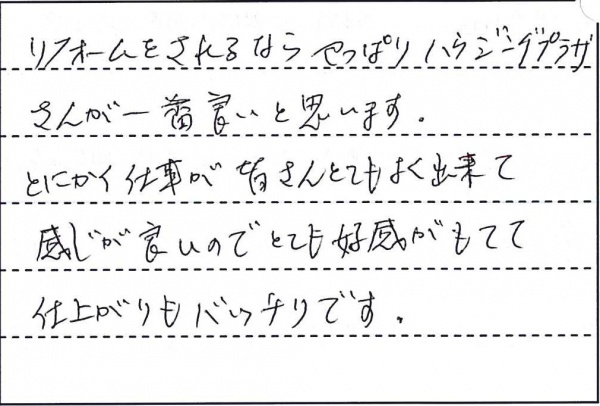 リフォームをされるなら やっぱり ハウジングプラザ
さんが一番良いと思います。
とにかく仕事が 皆さんとてもよく出来て
感じが良いのでとても好感がもてて
仕上がりもバッチリです。